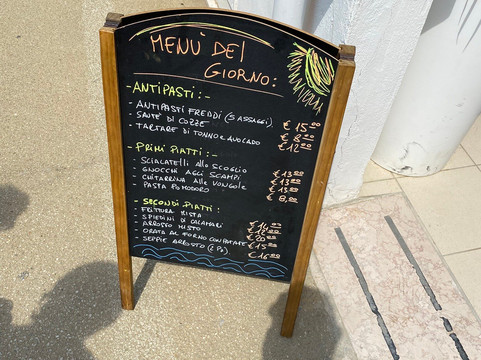 MENÙ DEL
GIORNO:
ANTIPASTI:-
- ANTIPASTI FREDDI (5 ASSAGGI). € 15⁰⁰
- SAUTÈ DI COZZE € 8⁰⁰
- TARTARE DI TONNO E AVOCADO € 12⁰⁰
- PRIMI PIATTI:-
- SCIALATELLI ALLO SCOGLIO € 13⁰⁰
- GNOCCHI AGLI SCAMPI € 13⁰⁰
- CHITARRINA ALLE VONGOLE € 13⁰⁰
- PASTA POMODORO € 8,00
- SECONDI PIATTI:
- FRITTURA MISTA € 14⁰⁰
- SPIEDINI DI CALAMARI € 12⁰⁰
- ARROSTO MISTO € 20⁰⁰
- ORATA AL FORNO CON PATATE € 15⁰⁰
- SEPPIE ARROSTO (2 PZ). € 16⁰⁰